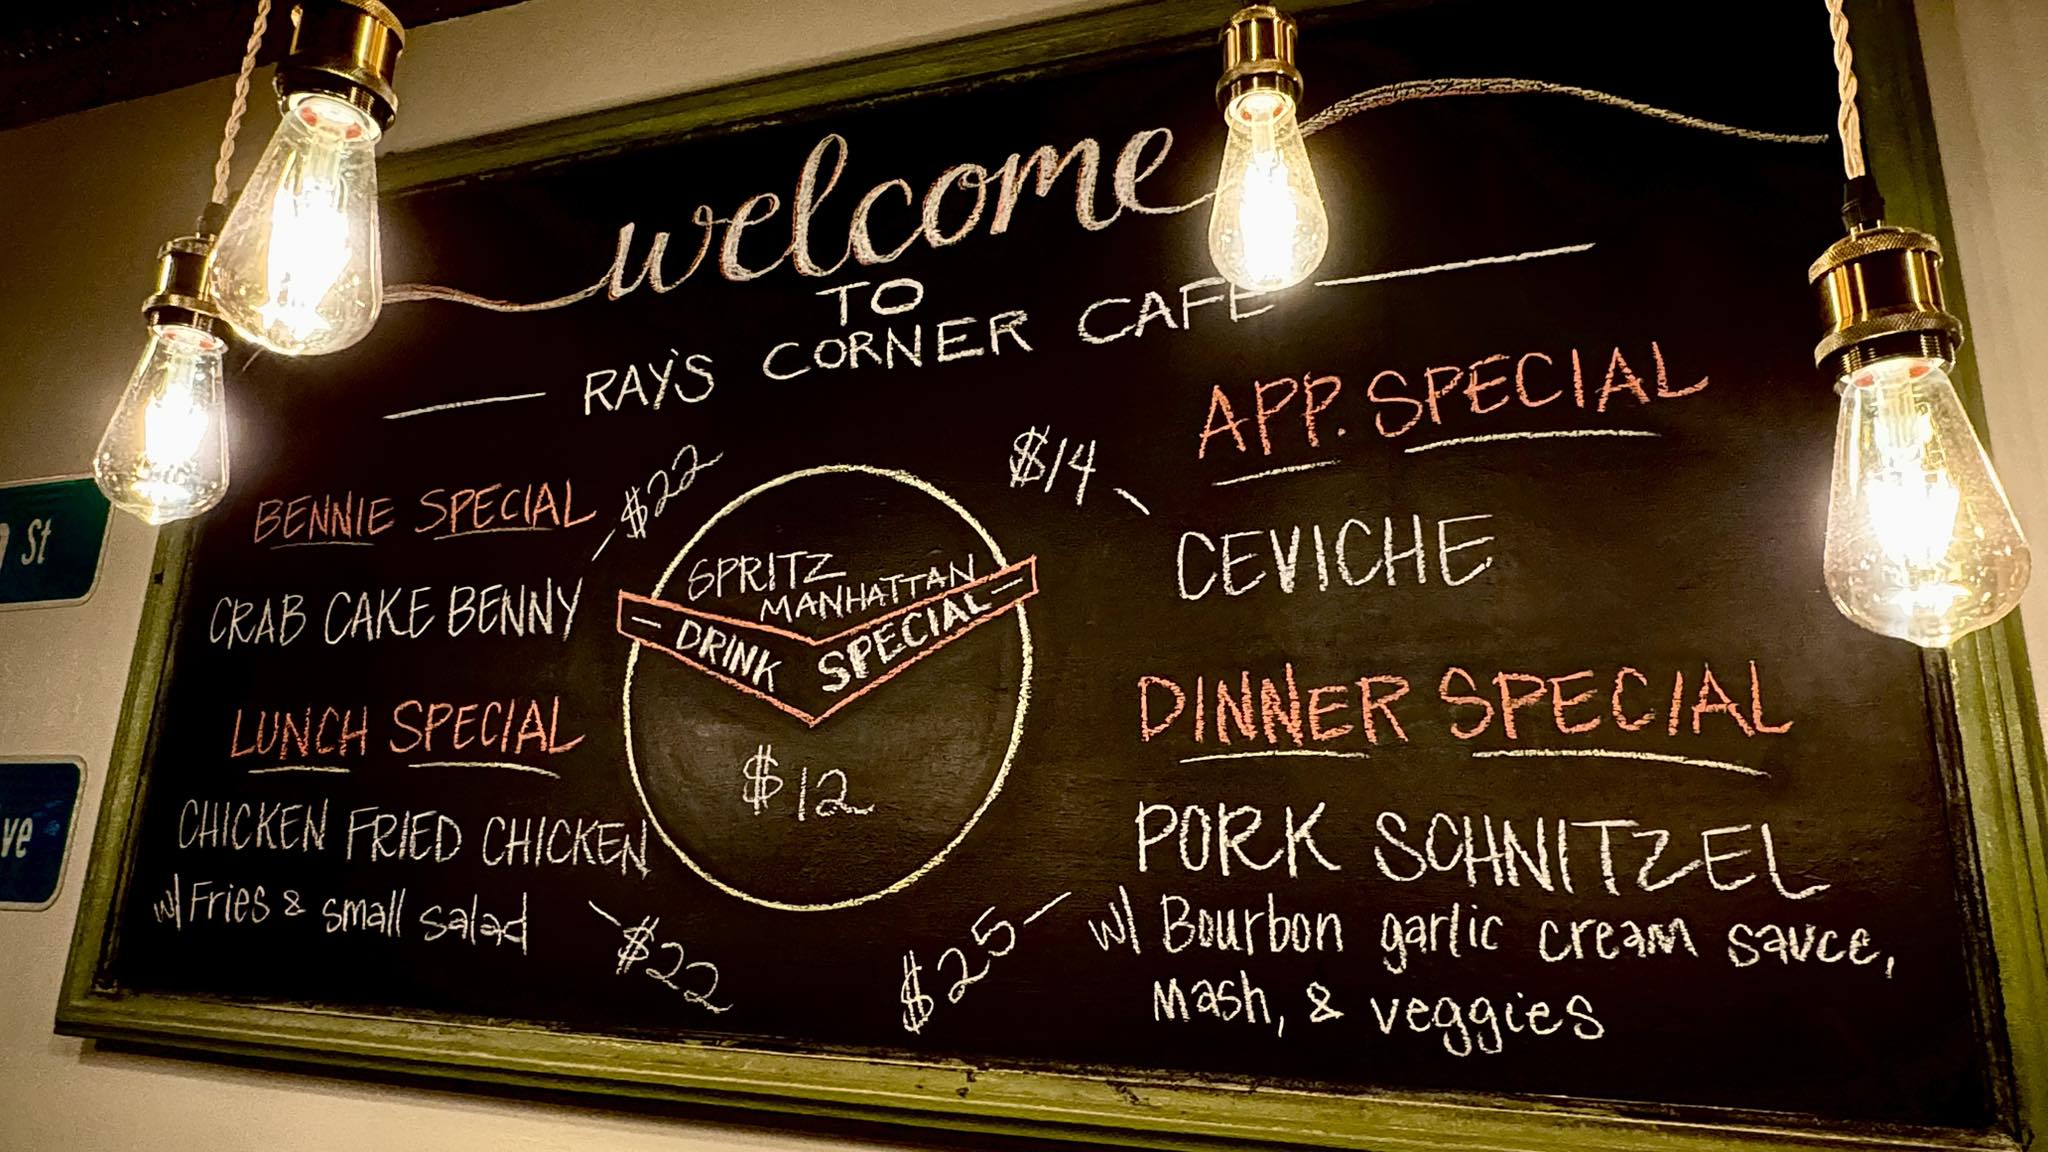 welcome
TO
RAY'S CORNER CAFE
BENNIE SPECIAL
$22
CRAB CAKE BENNY
LUNCH SPECIAL
CHICKEN FRIED CHICKEN
w/ Fries & small salad
$22
SPRITZ
MANHATTAN
DRINK SPECIAL
$12
APP. SPECIAL
$14
CEVICHE
DINNER SPECIAL
PORK SCHNITZEL
w/ Bourbon garlic cream sauce,
Mash, & veggies
$25
St
ve